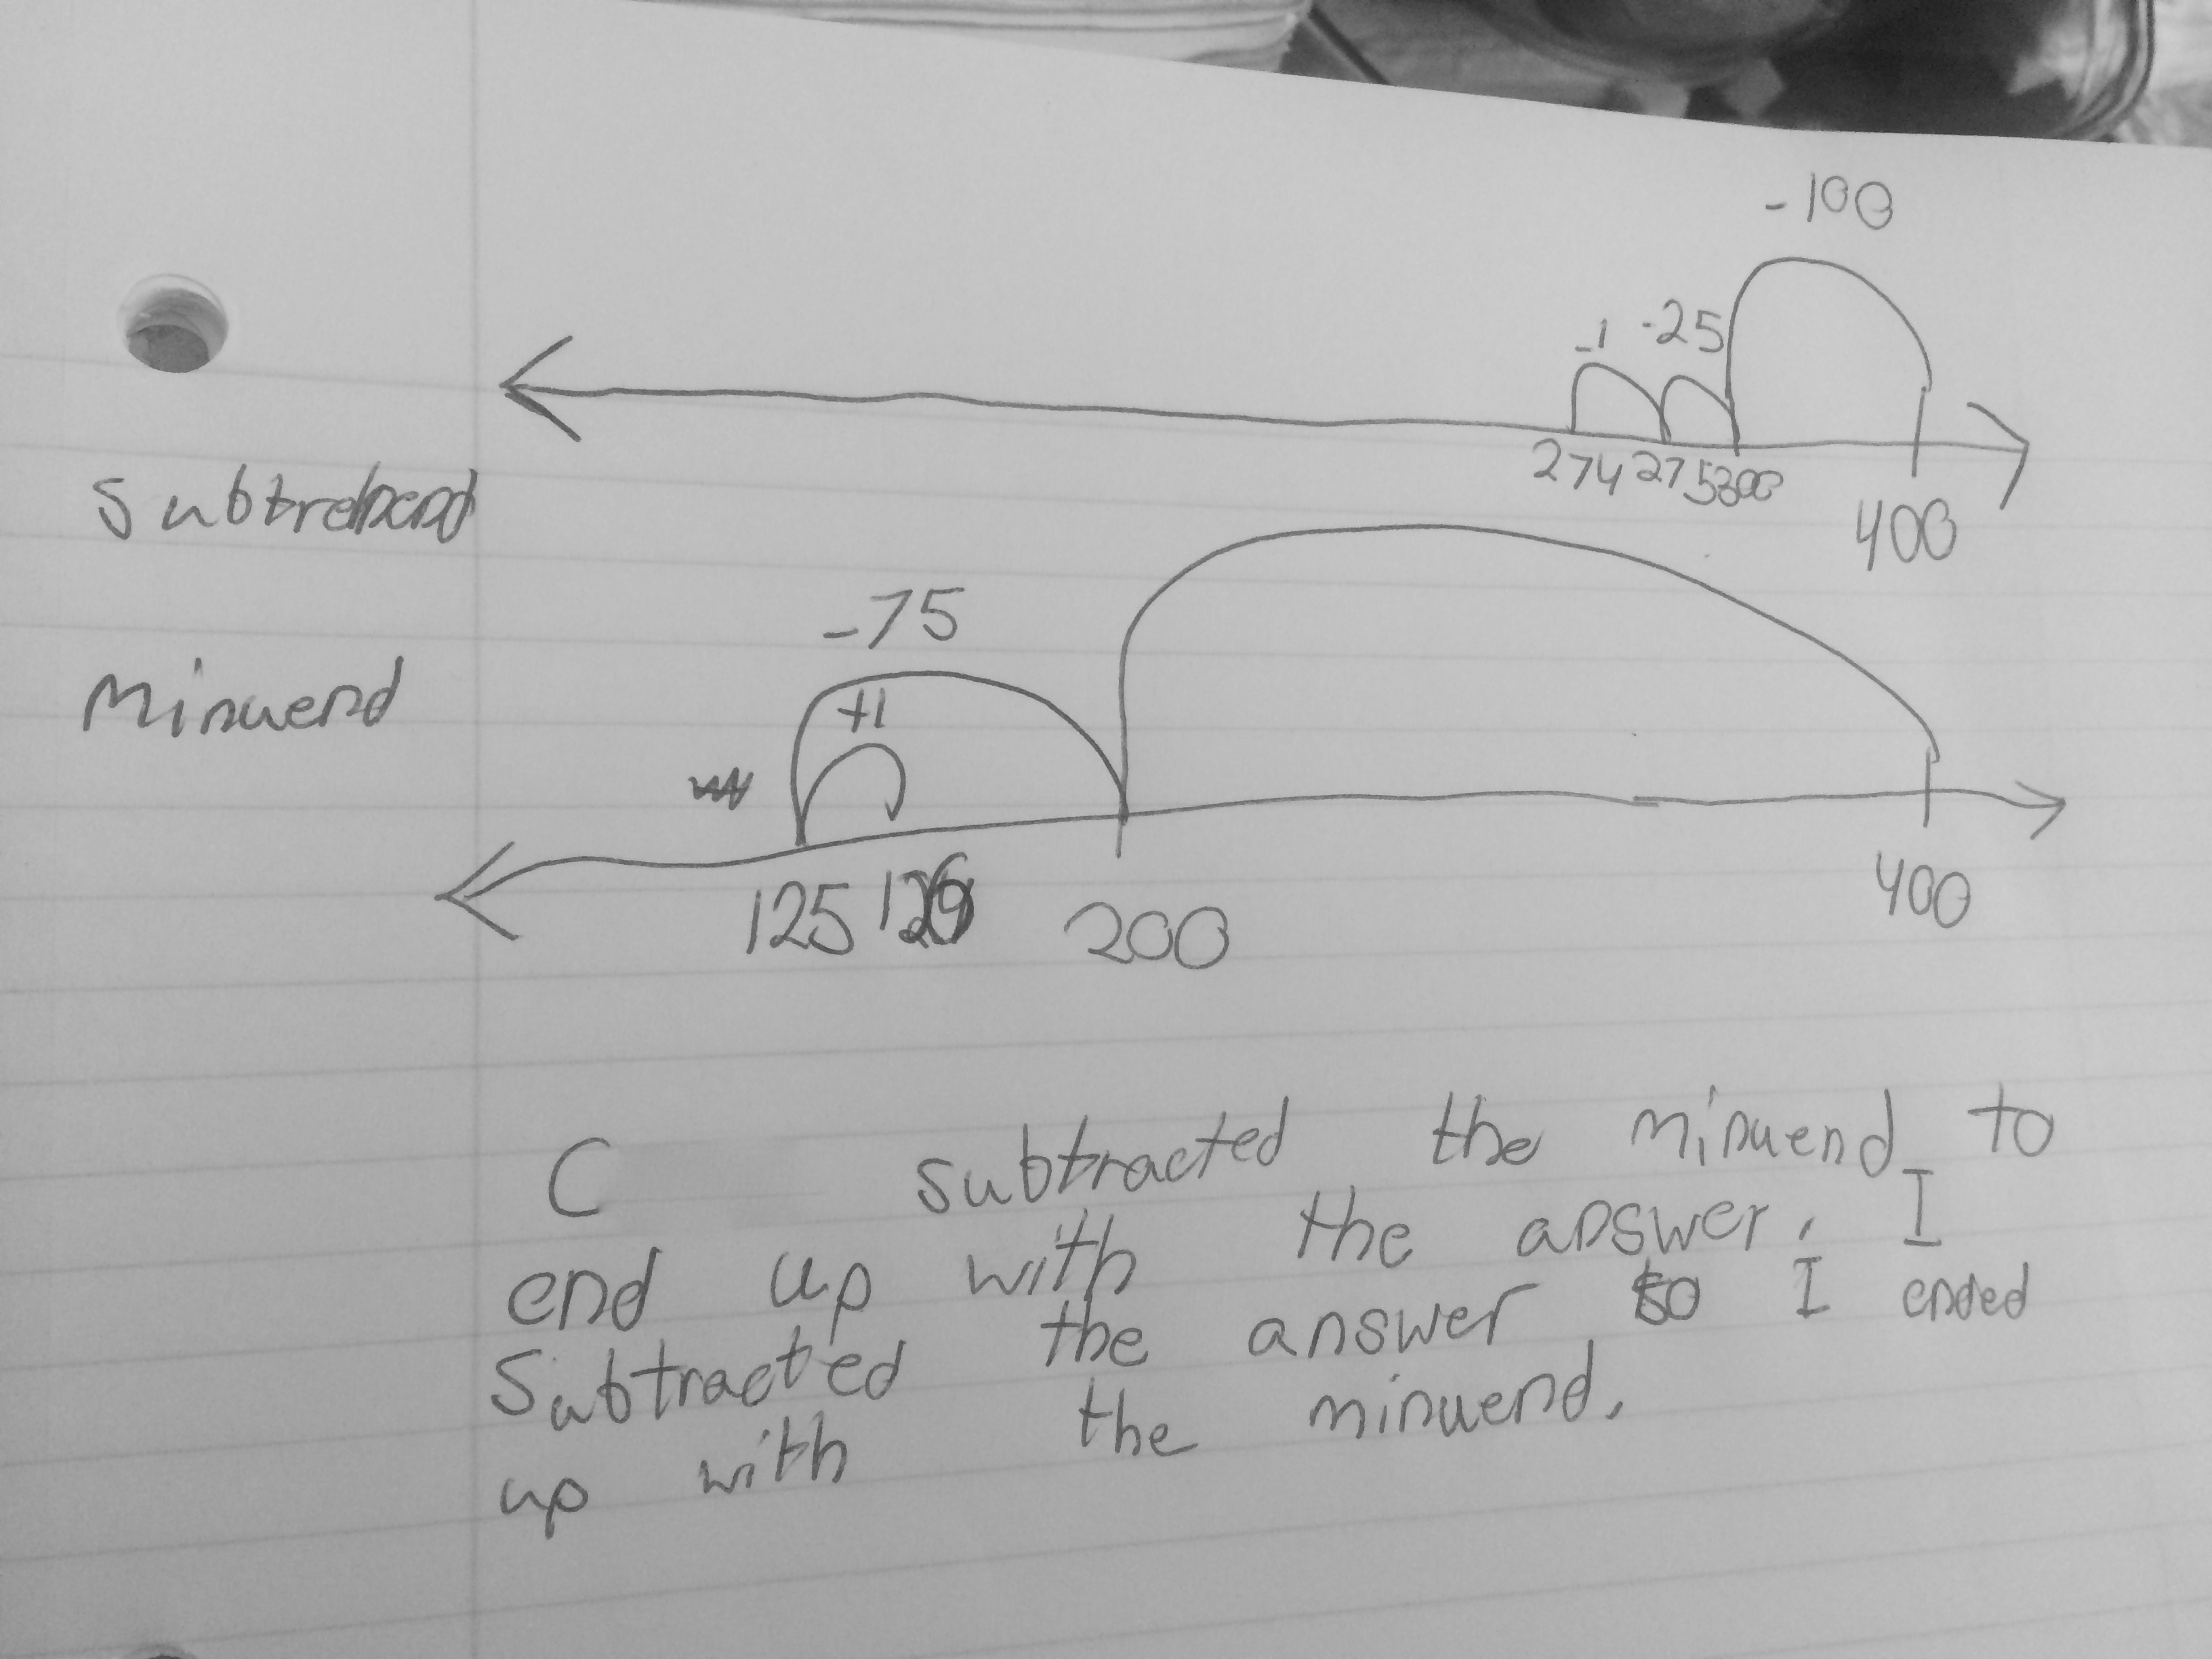 -100
-1 -25
274 275 300
400
Subtrehend
-75
+1
Minuend
125 126 200
400
C subtracted the minuend to
end up with the answer. I
Subtracted the answer so I ended
up with the minuend.